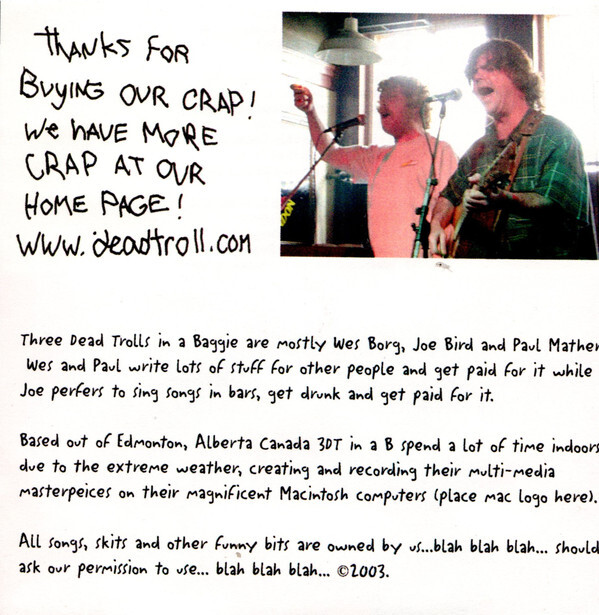 THANKS FOR
BUYING OUR CRAP!
WE HAVE MORE
CRAP AT OUR
HOME PAGE!
WWW.deadtroll.com
Three Dead Trolls in a Baggie are mostly Wes Borg, Joe Bird and Paul Mather
Wes and Paul write lots of stuff for other people and get paid for it while
Joe perfers to sing songs in bars, get drunk and get paid for it.
Based out of Edmonton, Alberta Canada 3DT in a B spend a lot of time indoors
due to the extreme weather, creating and recording their multi-media
masterpeices on their magnificent Macintosh computers (place mac logo here).
All songs, skits and other funny bits are owned by us...blah blah blah... should
ask our permission to use... blah blah blah... ©2003.